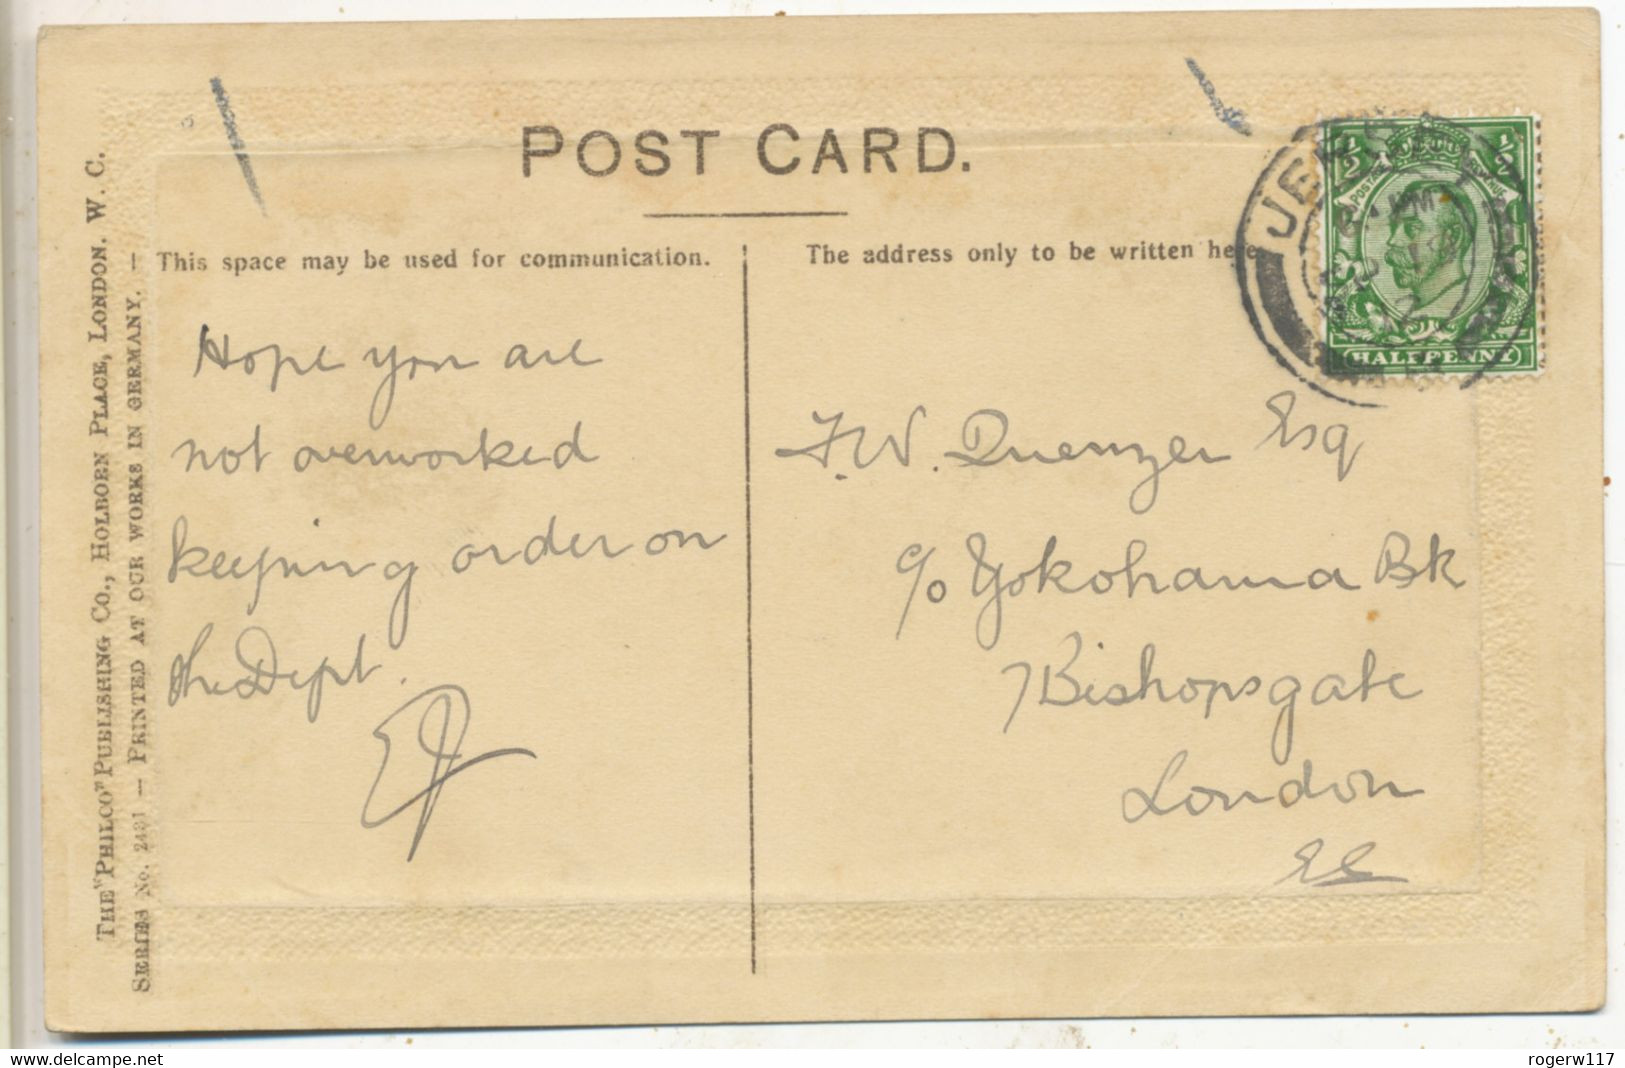 POST CARD.
This space may be used for communication.
The address only to be written here
Hope you are
not overworked
keeping order on
the Dept.
F.W. Quenzer Esq
c/o Yokohama Bk
7 Bishopsgate
London
EC
JERSEY
½ ½
POSTAGE REVENUE
HALFPENNY
THE "PHILCO" PUBLISHING CO., HOLBORN PLACE, LONDON. W. C.
SERIES No. 2431 — PRINTED AT OUR WORKS IN GERMANY. —
www.delcampe.net
rogerw117